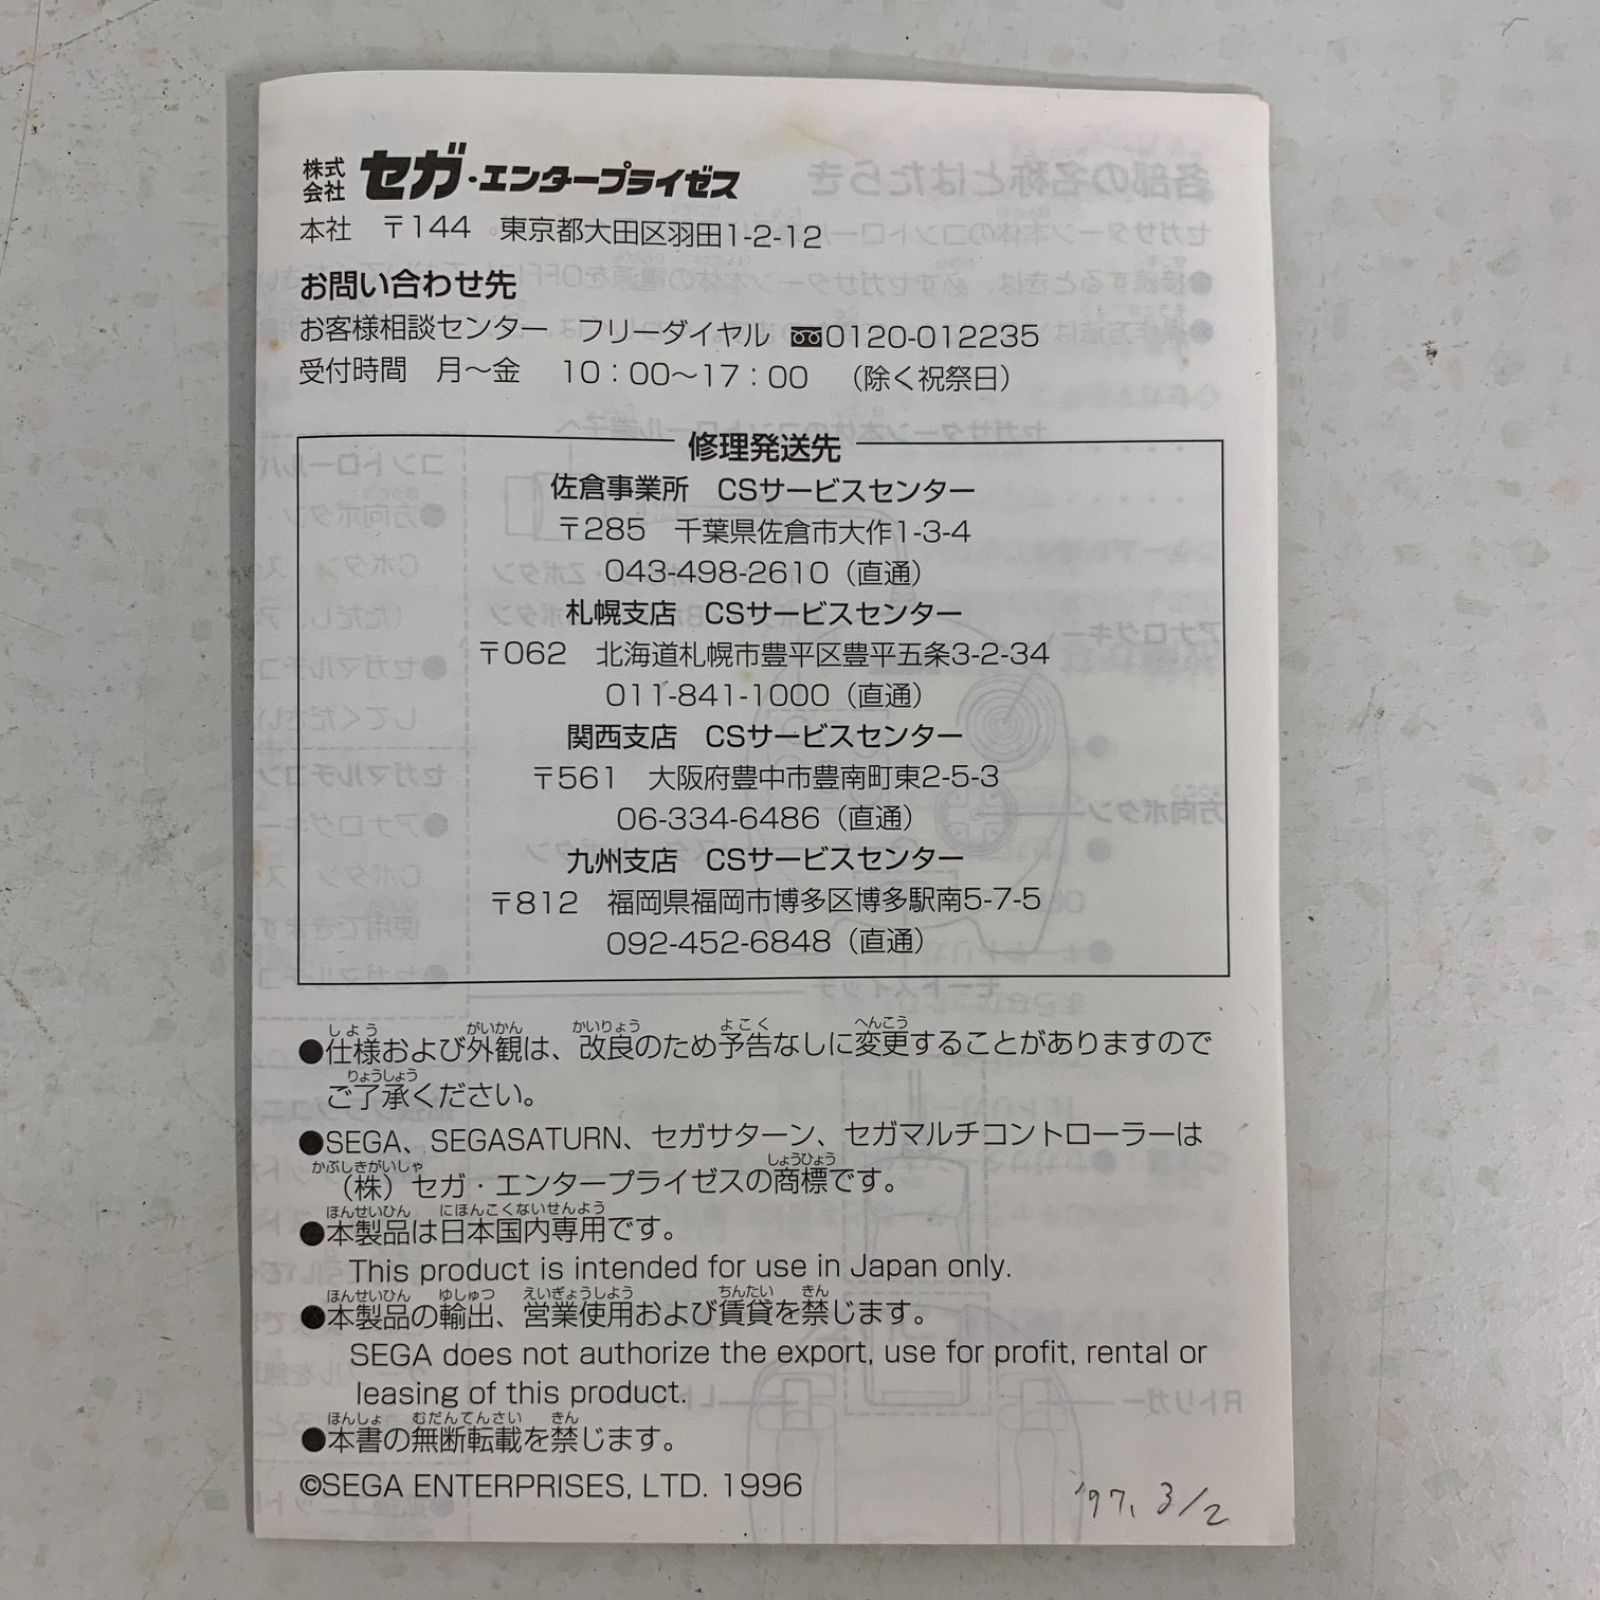 株式会社 セガ・エンタープライゼス
本社 〒144 東京都大田区羽田1-2-12
お問い合わせ先
お客様相談センター フリーダイヤル 0120-012235
受付時間 月〜金 10：00〜17：00 （除く祝祭日）
修理発送先
佐倉事業所 CSサービスセンター
〒285 千葉県佐倉市大作1-3-4
043-498-2610（直通）
札幌支店 CSサービスセンター
〒062 北海道札幌市豊平区豊平五条3-2-34
011-841-1000（直通）
関西支店 CSサービスセンター
〒561 大阪府豊中市豊南町東2-5-3
06-334-6486（直通）
九州支店 CSサービスセンター
〒812 福岡県福岡市博多区博多駅南5-7-5
092-452-6848（直通）
しよう がいかん かいりょう よこく へんこう
●仕様および外観は、改良のため予告なしに変更することがありますので
りょうしょう
ご了承ください。
●SEGA、SEGASATURN、セガサターン、セガマルチコントローラーは
かぶしきがいしゃ しょうひょう
（株）セガ・エンタープライゼスの商標です。
ほんせいひん にほんこくないせんよう
●本製品は日本国内専用です。
This product is intended for use in Japan only.
ほんせいひん ゆしゅつ えいぎょうしよう ちんたい きん
●本製品の輸出、営業使用および賃貸を禁じます。
SEGA does not authorize the export, use for profit, rental or
leasing of this product.
ほんしょ むだんてんさい きん
●本書の無断転載を禁じます。
©SEGA ENTERPRISES, LTD. 1996
'97. 3/2